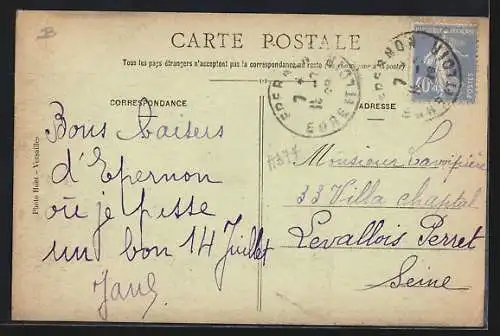 B
CARTE POSTALE
Tous les pays étrangers n'acceptent pas la correspondance au recto
CORRESPONDANCE
ADRESSE
Bons baisers
d'Epernon
où je passe
un bon 14 Juillet
Photo Huet - Versailles
Monsieur
33 Villa chaptal
Levallois Perret
Seine
EPERNON
EURE-ET-LOIR
EPERNON
40c